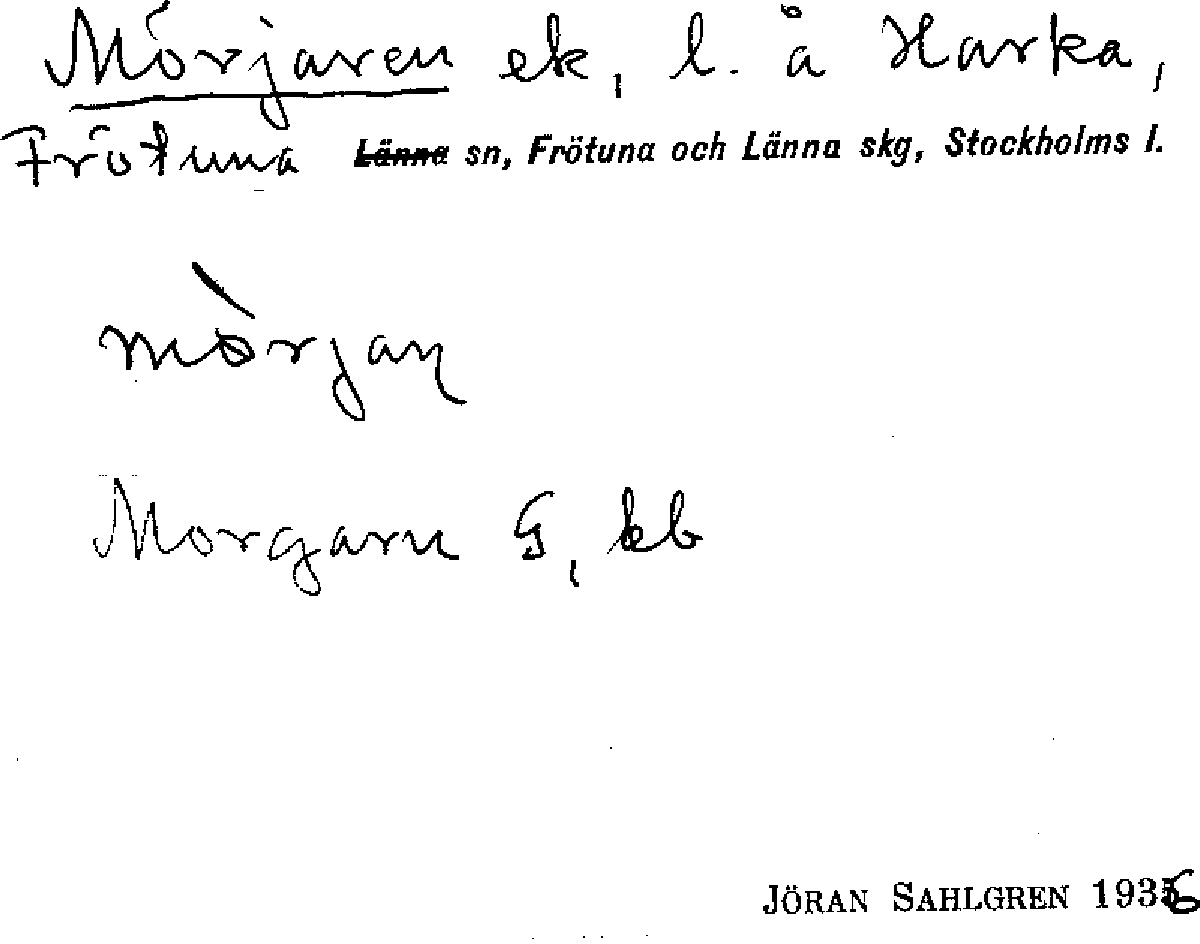 Mörjaren ek, l. å Harka,
Frötuna ~~Länna~~ sn, Frötuna och Länna skg, Stockholms l.
mòrjaɳ
Morgarn G, kb
JÖRAN SAHLGREN 1936